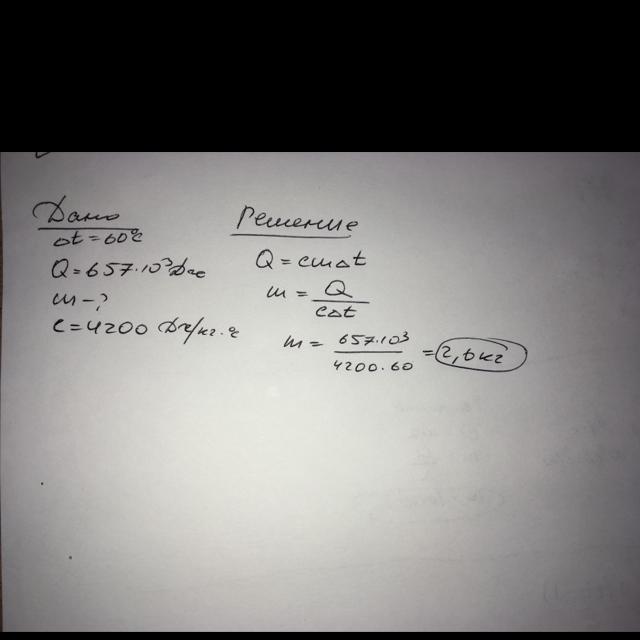 Дано
Δt = 60°C
Q = 657·10³ Дж
m - ?
c = 4200 Дж/кг·°C
Решение
Q = cmΔt
m = Q / cΔt
m = 657·10³ / 4200·60 = 2,6 кг